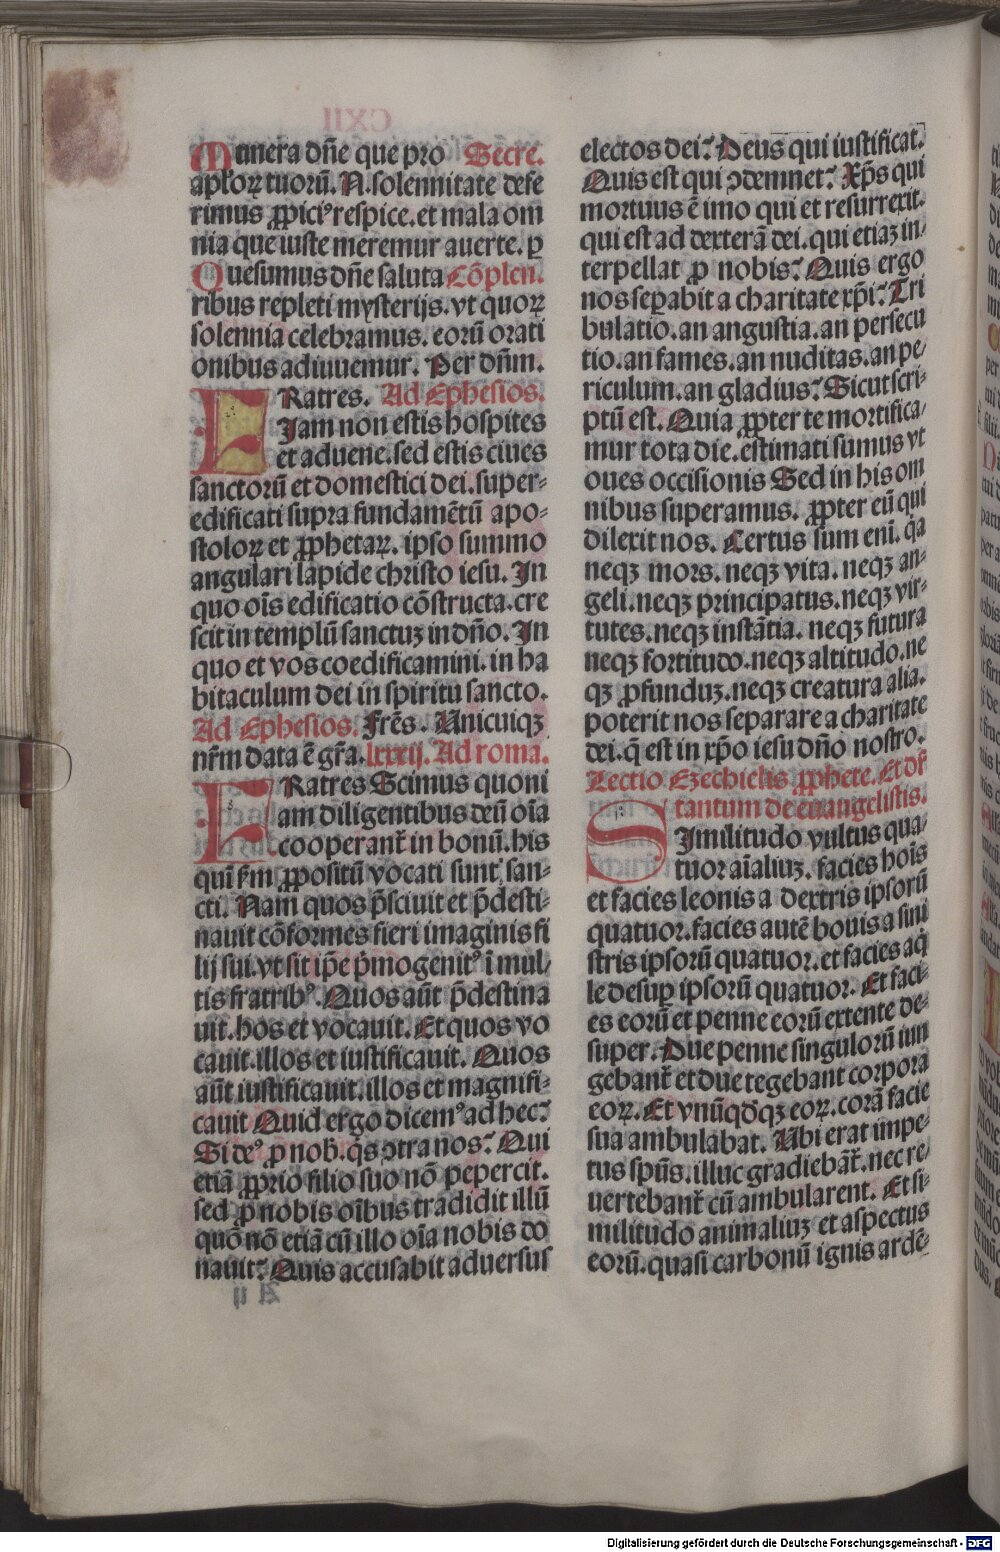 Munera dñe que pro Secre.
aploꝝ tuoꝝ. N. solennitate defe
rimus ꝓpici⁹ respice. et mala om
nia que iuste meremur auerte. ꝑ
Quesumus dñe saluta Cõplen.
ribus repleti mysterijs. vt quoꝝ
solennia celebramus. eorũ orati
onibus adiuuemur. Per dñm.
FRatres. Ad Ephesios.
Iam non estis hospites
et aduene. sed estis ciues
sanctorũ et domestici dei. super-
edificati supra fundamẽtũ apo-
stoloꝝ et ꝓphetaꝝ. ipso summo
angulari lapide christo iesu. In
quo oĩs edificatio cõstructa. cre
scit in templũ sanctuꝫ in dño. In
quo et vos coedificamini. in ha
bitaculum dei in spiritu sancto.
Ad Ephesios. Frẽs. Unicuiqꝫ
nr̃m data ẽ gr̃a. lxxxij. Ad roma.
FRatres Scimus quoni
am diligentibus deũ oĩa
cooperant᷑ in bonũ. his
quĩ ẜm ꝓpositũ vocati sunt san-
cti. Nam quos p̃sciuit et p̃desti-
nauit cõformes fieri imaginis fi
lij sui. vt sit ip̃e p̃mogenit⁹ ĩ mul/
tis fratrib⁹. Quos aũt p̃destina
uit. hos et vocauit. Et quos vo
cauit. illos et iustificauit. Quos
aũt iustificauit. illos et magnifi-
cauit Quid ergo dicem⁹ ad hec?
Si de⁹ ꝓ nob. q̃s ↄtra nos? Qui
etiã ꝓprio filio suo nõ pepercit.
sed ꝓ nobis oĩbus tradidit illũ
quõ nõ etiã cũ illo oĩa nobis do
nauit? Quis accusabit aduersus
electos dei? Deus qui iustificat.
Quis est qui ↄdemnet? Xp̃s qui
mortuus ẽ imo qui et resurrexit.
qui est ad dexterã dei. qui etiaꝫ in/
terpellat ꝓ nobis? Quis ergo
nos seꝑabit a charitate xp̃i? Tri
bulatio. an angustia. an persecu
tio. an fames. an nuditas. an pe/
riculum. an gladius? Sicut scri-
ptũ est. Quia ꝓpter te mortifica/
mur tota die. estimati sumus vt
oues occisionis Sed in his om
nibus superamus. ꝓpter eũ qui
dilexit nos. Certus sum enĩ. q̃a
neqꝫ mors. neqꝫ vita. neqꝫ an-
geli. neqꝫ principatus. neqꝫ vir-
tutes. neqꝫ instãtia. neqꝫ futura
neqꝫ fortitudo. neqꝫ altitudo. ne
qꝫ ꝓfunduꝫ. neqꝫ creatura alia.
poterit nos separare a charitate
dei. q̃ est in xp̃o iesu dño nostro.
Lectio Ezechielis ꝓphete. Et dr̃
tantum de euangelistis.
SImilitudo vultus qua/
tuor aĩaliuꝫ. facies hoĩs
et facies leonis a dextris ipsorũ
quatuor. facies autẽ bouis a sini
stris ipsorũ quatuor. et facies aq̃
le desuꝑ ipsorũ quatuor. Et faci-
es eorũ et penne eorũ extente de-
super. Due penne singulorũ iun
gebant᷑ et due tegebant corpora
eoꝝ. Et vnũqd̃qꝫ eoꝝ. corã facie
sua ambulabat. Ubi erat impe-
tus spũs. illuc gradiebãt᷑. nec re/
uertebant᷑ cũ ambularent. Et si-
militudo animaliuꝫ et aspectus
eorũ. quasi carbonũ ignis ardẽ-
Digitalisierung gefördert durch die Deutsche Forschungsgemeinschaft - DFG